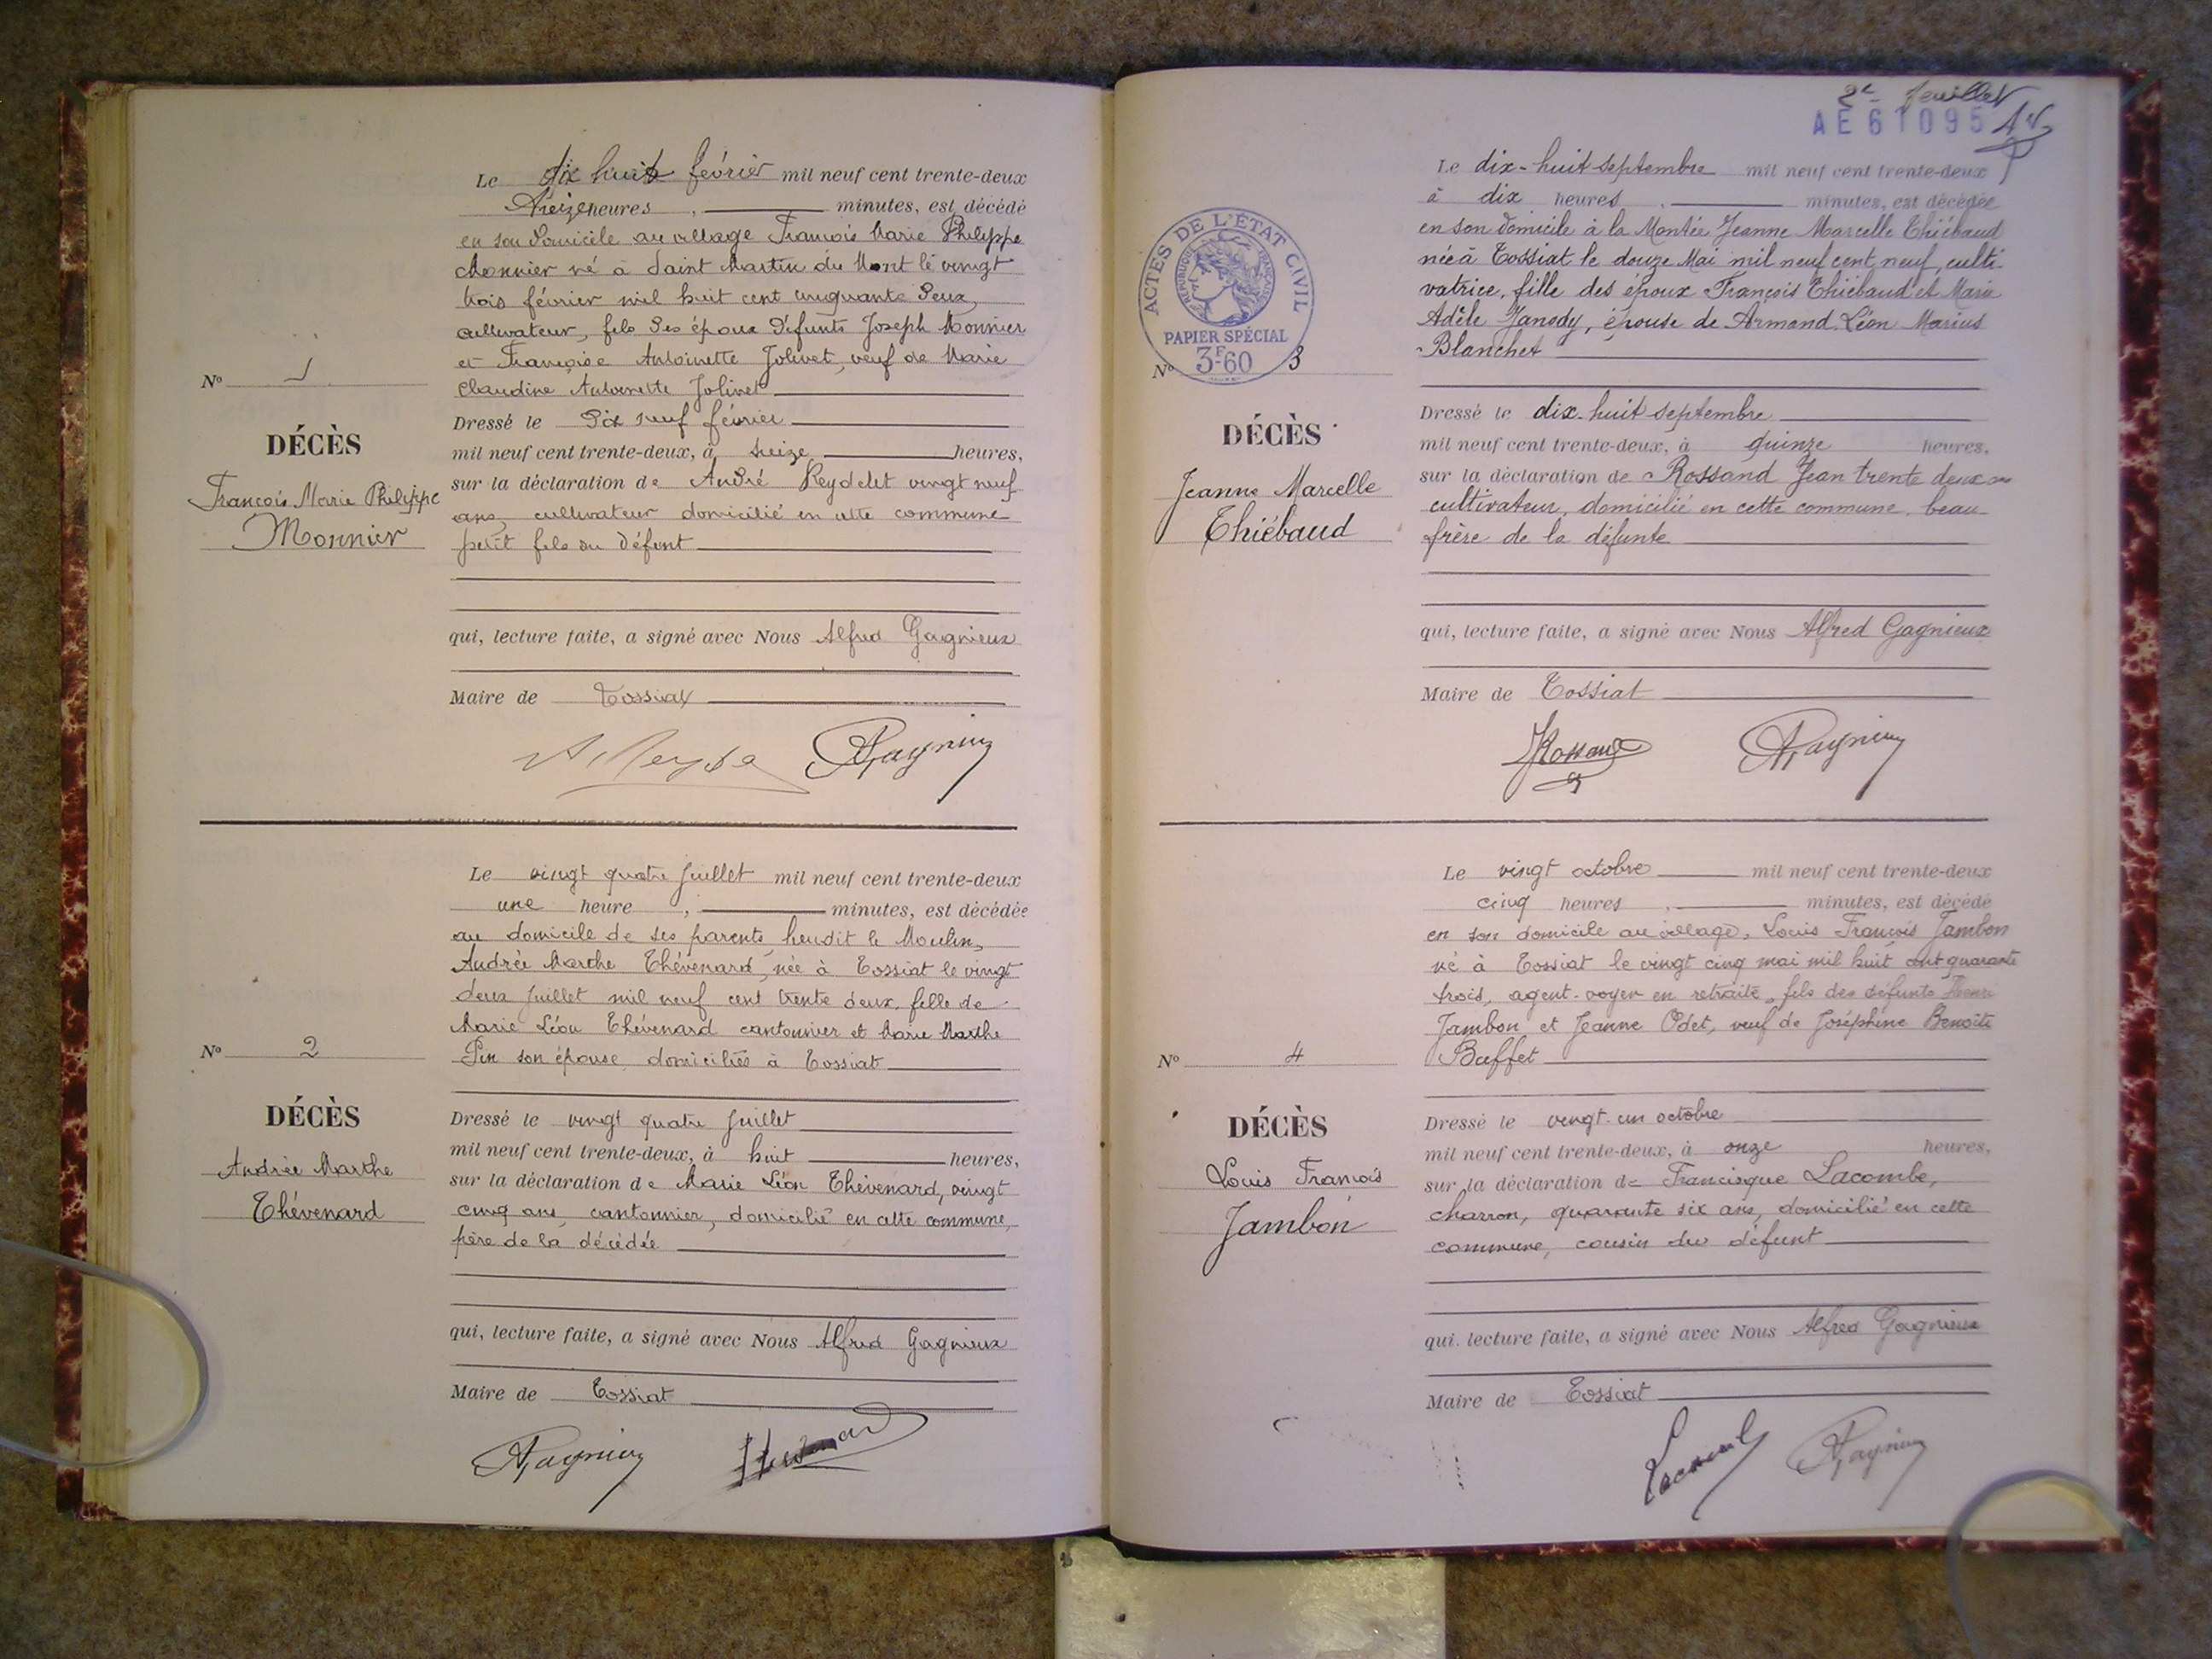 Le dix huit février mil neuf cent trente-deux
treize heures, minutes, est décédé
en son domicile au village François Marie Philippe
Monnier né à Saint Martin du Mont le vingt
trois février mil huit cent cinquante deux,
cultivateur, fils des époux défunts Joseph Monnier
et Françoise Antoinette Jolivet, veuf de Marie
Claudine Antoinette Jolivet
Nº 1
DÉCÈS
François Marie Philippe
Monnier
Dressé le dix neuf février
mil neuf cent trente-deux, à seize heures,
sur la déclaration de André Reydelet vingt neuf
ans, cultivateur domicilié en cette commune
petit fils du défunt
qui, lecture faite, a signé avec Nous Alfred Gagnieux
Maire de Tossiat
Le vingt quatre juillet mil neuf cent trente-deux
une heure, minutes, est décédée
au domicile de ses parents, lieudit le Moulin,
Andrée Marthe Thévenard, née à Tossiat le vingt
deux juillet mil neuf cent trente deux, fille de
Marie Léon Thévenard cantonnier et Marie Marthe
Pin son épouse, domiciliés à Tossiat
Nº 2
DÉCÈS
Andrée Marthe
Thévenard
Dressé le vingt quatre juillet
mil neuf cent trente-deux, à huit heures,
sur la déclaration de Marie Léon Thévenard, vingt
cinq ans, cantonnier, domicilié en cette commune,
père de la décédée
qui, lecture faite, a signé avec Nous Alfred Gagnieux
Maire de Tossiat
2e feuillet
AE61095
ACTES DE L'ÉTAT CIVIL
RÉPUBLIQUE FRANÇAISE
PAPIER SPÉCIAL
3F60
Le dix-huit septembre mil neuf cent trente-deux
à dix heures, minutes, est décédée
en son domicile à la Montée Jeanne Marcelle Thiébaud
née à Tossiat le douze Mai mil neuf cent neuf, culti-
vatrice, fille des époux François Thiébaud et Marie
Adèle Janody, épouse de Armand Léon Marius
Blanchet
Nº 3
DÉCÈS
Jeanne Marcelle
Thiébaud
Dressé le dix-huit septembre
mil neuf cent trente-deux, à quinze heures,
sur la déclaration de Rossand Jean trente deux ans
cultivateur, domicilié en cette commune, beau-
frère de la défunte
qui, lecture faite, a signé avec Nous Alfred Gagnieux
Maire de Tossiat
Le vingt octobre mil neuf cent trente-deux
cinq heures, minutes, est décédé
en son domicile au village, Louis François Jambon
né à Tossiat le vingt cinq mai mil huit cent quarante
trois, agent-voyer en retraite, fils des défunts Henri
Jambon et Jeanne Odet, veuf de Joséphine Benoîte
Buffet
Nº 4
DÉCÈS
Louis François
Jambon
Dressé le vingt-un octobre
mil neuf cent trente-deux, à onze heures,
sur la déclaration de Francisque Lacombe,
charron, quarante six ans, domicilié en cette
commune, cousin du défunt
qui, lecture faite, a signé avec Nous Alfred Gagnieux
Maire de Tossiat